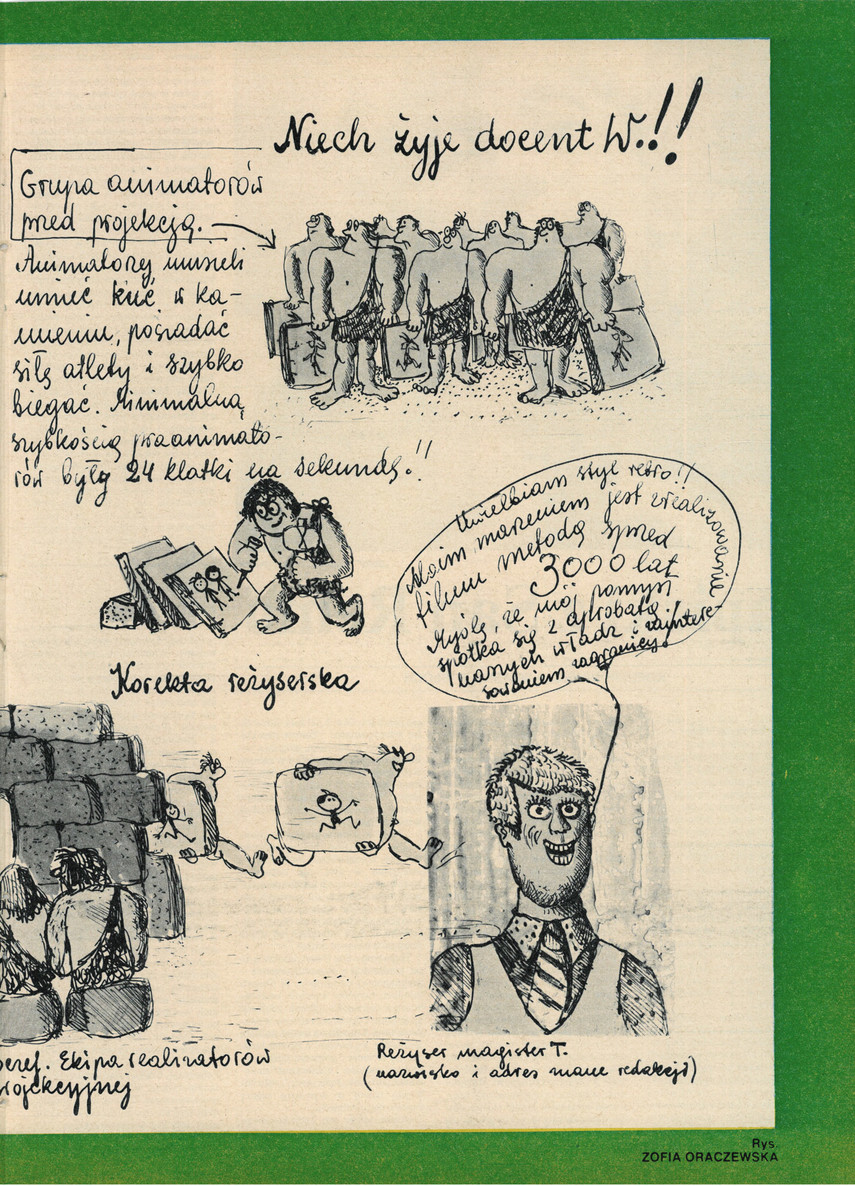 Niech żyje docent W..!!
Grupa animatorów
pred projekcją.
Animatorzy musieli
umieć kuć w ka-
mieniu, posiadać
siłę atlety i szybko
biegać. Minimalną
szybkością praanimato-
rów były 24 klatki na sekundę.!!
Uwielbiam styl retro!!
Moim marzeniem jest zrealizowanie
filmu metodą sprzed
3000 lat
Myślę, że mój pomysł
spotka się z aprobatą
naszych władz i zaintere-
sowaniem zagranicy!
Korekta reżyserska
Ekipa realizatorów
Reżyser magister T.
(nazwisko i adres znane redakcji)
Rys.
ZOFIA ORACZEWSKA